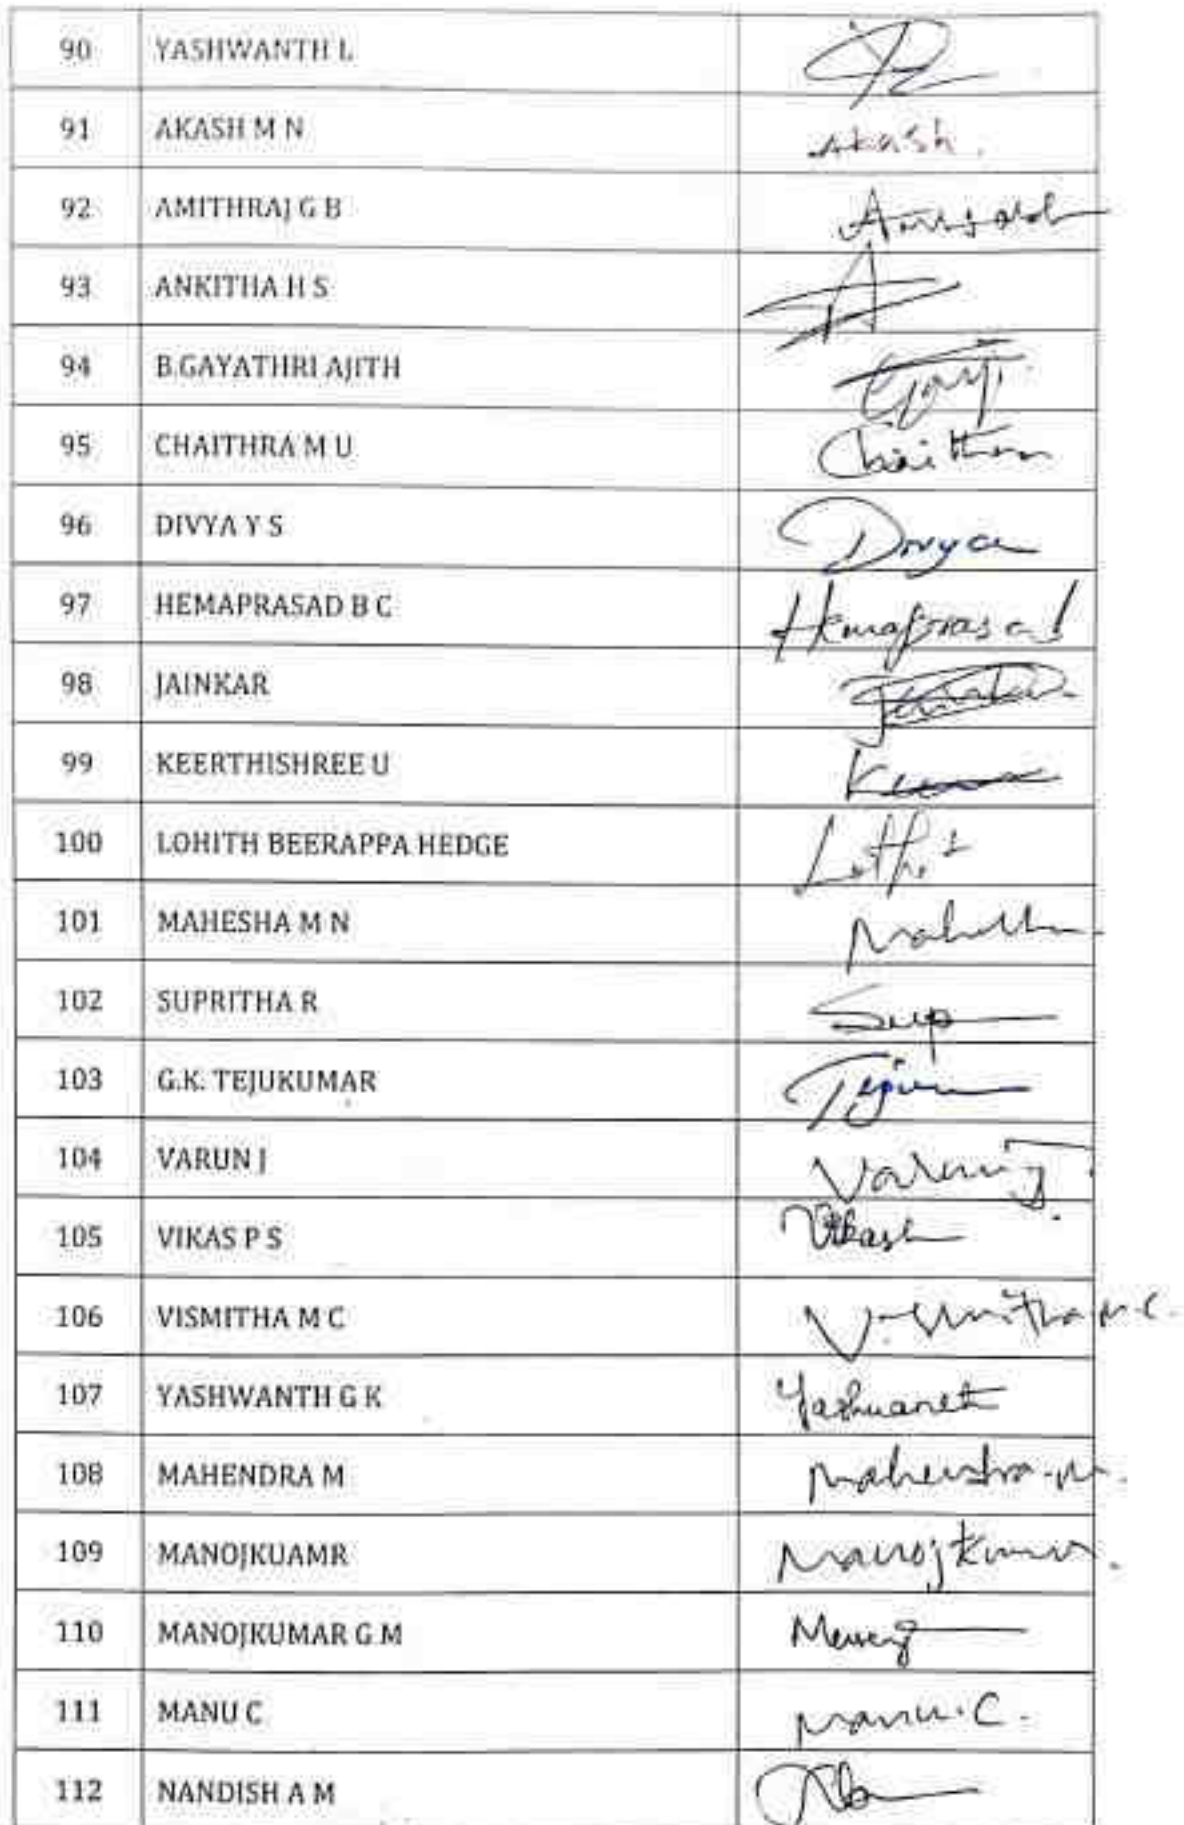 90 YASHWANTH L
91 AKASH M N Akash.
92 AMITHRAJ G B
93 ANKITHA H S A
94 B.GAYATHRI AJITH
95 CHAITHRA M U Chaithra
96 DIVYA Y S Divya
97 HEMAPRASAD B C Hemaprasad
98 JAINKAR
99 KEERTHISHREE U
100 LOHITH BEERAPPA HEDGE
101 MAHESHA M N
102 SUPRITHA R Sup
103 G.K. TEJUKUMAR
104 VARUN J Varun J.
105 VIKAS P S Vikash
106 VISMITHA M C Vismitha M.C.
107 YASHWANTH G K
108 MAHENDRA M Mahendra.M.
109 MANOJKUAMR Manojkumar.
110 MANOJKUMAR G M
111 MANU C Manu.C.
112 NANDISH A M